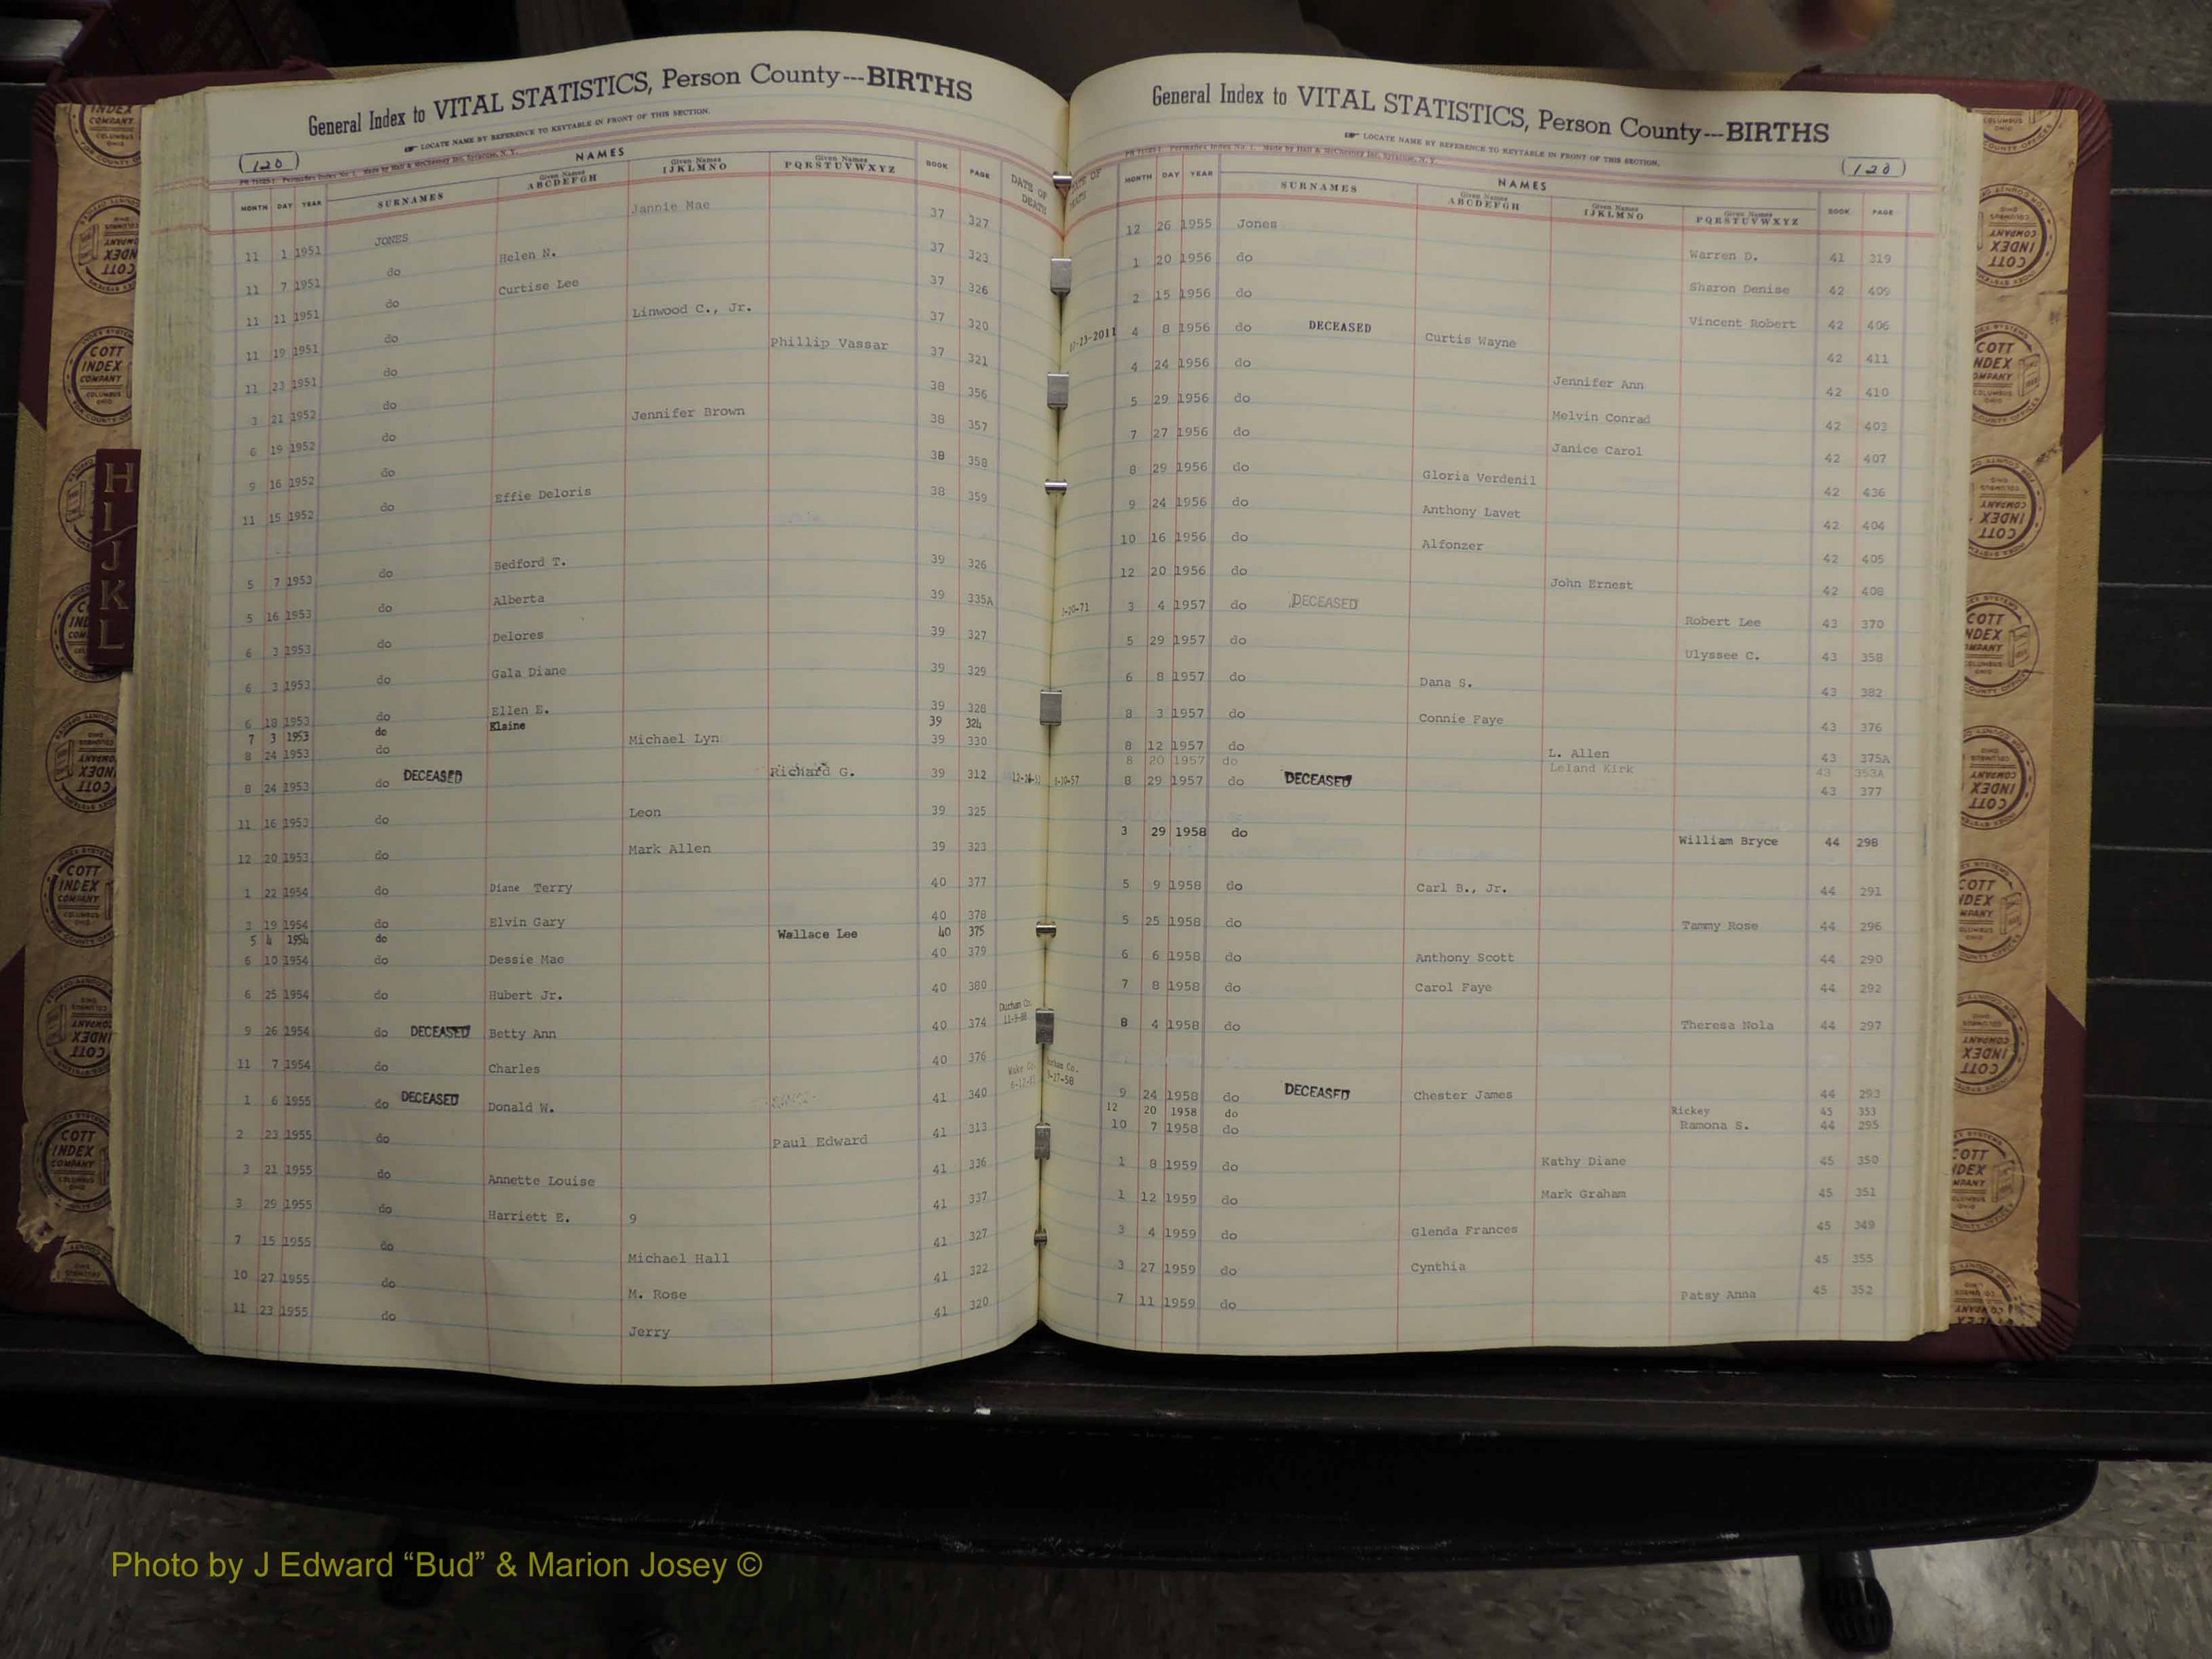 General Index to VITAL STATISTICS, Person County---BIRTHS
LOCATE NAME BY REFERENCE TO KEYTABLE IN FRONT OF THIS SECTION.
(120)
NAMES
MONTH DAY YEAR SURNAMES Given Names ABCDEFGH Given Names IJKLMNO Given Names PQRSTUVWXYZ BOOK PAGE DATE OF DEATH
11 1 1951 JONES Jannie Mae 37 327
11 7 1951 do Helen N. 37 323
11 11 1951 do Curtise Lee 37 326
11 19 1951 do Linwood C., Jr. 37 320
11 23 1951 do Phillip Vassar 37 321
3 21 1952 do 38 356
6 19 1952 do Jennifer Brown 38 357
9 16 1952 do 38 358
11 15 1952 do Effie Deloris 38 359
5 7 1953 do Bedford T. 39 326
5 16 1953 do Alberta 39 335A
6 3 1953 do Delores 39 327
6 3 1953 do Gala Diane 39 329
6 18 1953 do Ellen E. 39 328
7 3 1953 do Elaine 39 324
8 24 1953 do Michael Lyn 39 330
8 24 1953 do DECEASED Richard G. 39 312
11 16 1953 do Leon 39 325
12 20 1953 do Mark Allen 39 323
1 22 1954 do Diane Terry 40 377
3 19 1954 do Elvin Gary 40 378
5 4 1954 do Wallace Lee 40 375
6 10 1954 do Dessie Mae 40 379
6 25 1954 do Hubert Jr. 40 380
9 26 1954 do DECEASED Betty Ann 40 374 Durham Co. 11-9-88
11 7 1954 do Charles 40 376
1 6 1955 do DECEASED Donald W. 41 340 Wake Co.
2 23 1955 do Paul Edward 41 313
3 21 1955 do Annette Louise 41 336
3 29 1955 do Harriett E. 9 41 337
7 15 1955 do Michael Hall 41 327
10 27 1955 do M. Rose 41 322
11 23 1955 do Jerry 41 320
General Index to VITAL STATISTICS, Person County---BIRTHS
LOCATE NAME BY REFERENCE TO KEYTABLE IN FRONT OF THIS SECTION.
(120)
NAMES
DATE OF DEATH MONTH DAY YEAR SURNAMES Given Names ABCDEFGH Given Names IJKLMNO Given Names PQRSTUVWXYZ BOOK PAGE
12 26 1955 Jones Warren D. 41 319
1 20 1956 do Sharon Denise 42 409
2 15 1956 do Vincent Robert 42 406
4 8 1956 do DECEASED Curtis Wayne 42 411
4 24 1956 do Jennifer Ann 42 410
5 29 1956 do Melvin Conrad 42 403
7 27 1956 do Janice Carol 42 407
8 29 1956 do Gloria Verdenil 42 436
9 24 1956 do Anthony Lavet 42 404
10 16 1956 do Alfonzer 42 405
12 20 1956 do John Ernest 42 408
3 4 1957 do DECEASED Robert Lee 43 370
5 29 1957 do Ulyssee C. 43 358
6 8 1957 do Dana S. 43 382
8 3 1957 do Connie Faye 43 376
8 12 1957 do L. Allen 43 375A
8 20 1957 do Leland Kirk 43 353A
8 29 1957 do DECEASED 43 377
3 29 1958 do William Bryce 44 298
5 9 1958 do Carl B., Jr. 44 291
5 25 1958 do Tammy Rose 44 296
6 6 1958 do Anthony Scott 44 290
7 8 1958 do Carol Faye 44 292
8 4 1958 do Theresa Nola 44 297
9 24 1958 do DECEASED Chester James 44 293
12 20 1958 do Rickey 45 353
10 7 1958 do Ramona S. 44 295
1 8 1959 do Kathy Diane 45 350
1 12 1959 do Mark Graham 45 351
3 4 1959 do Glenda Frances 45 349
3 27 1959 do Cynthia 45 355
7 11 1959 do Patsy Anna 45 352
H
I
J
K
L
COTT INDEX COMPANY COLUMBUS OHIO
Photo by J Edward “Bud” & Marion Josey ©